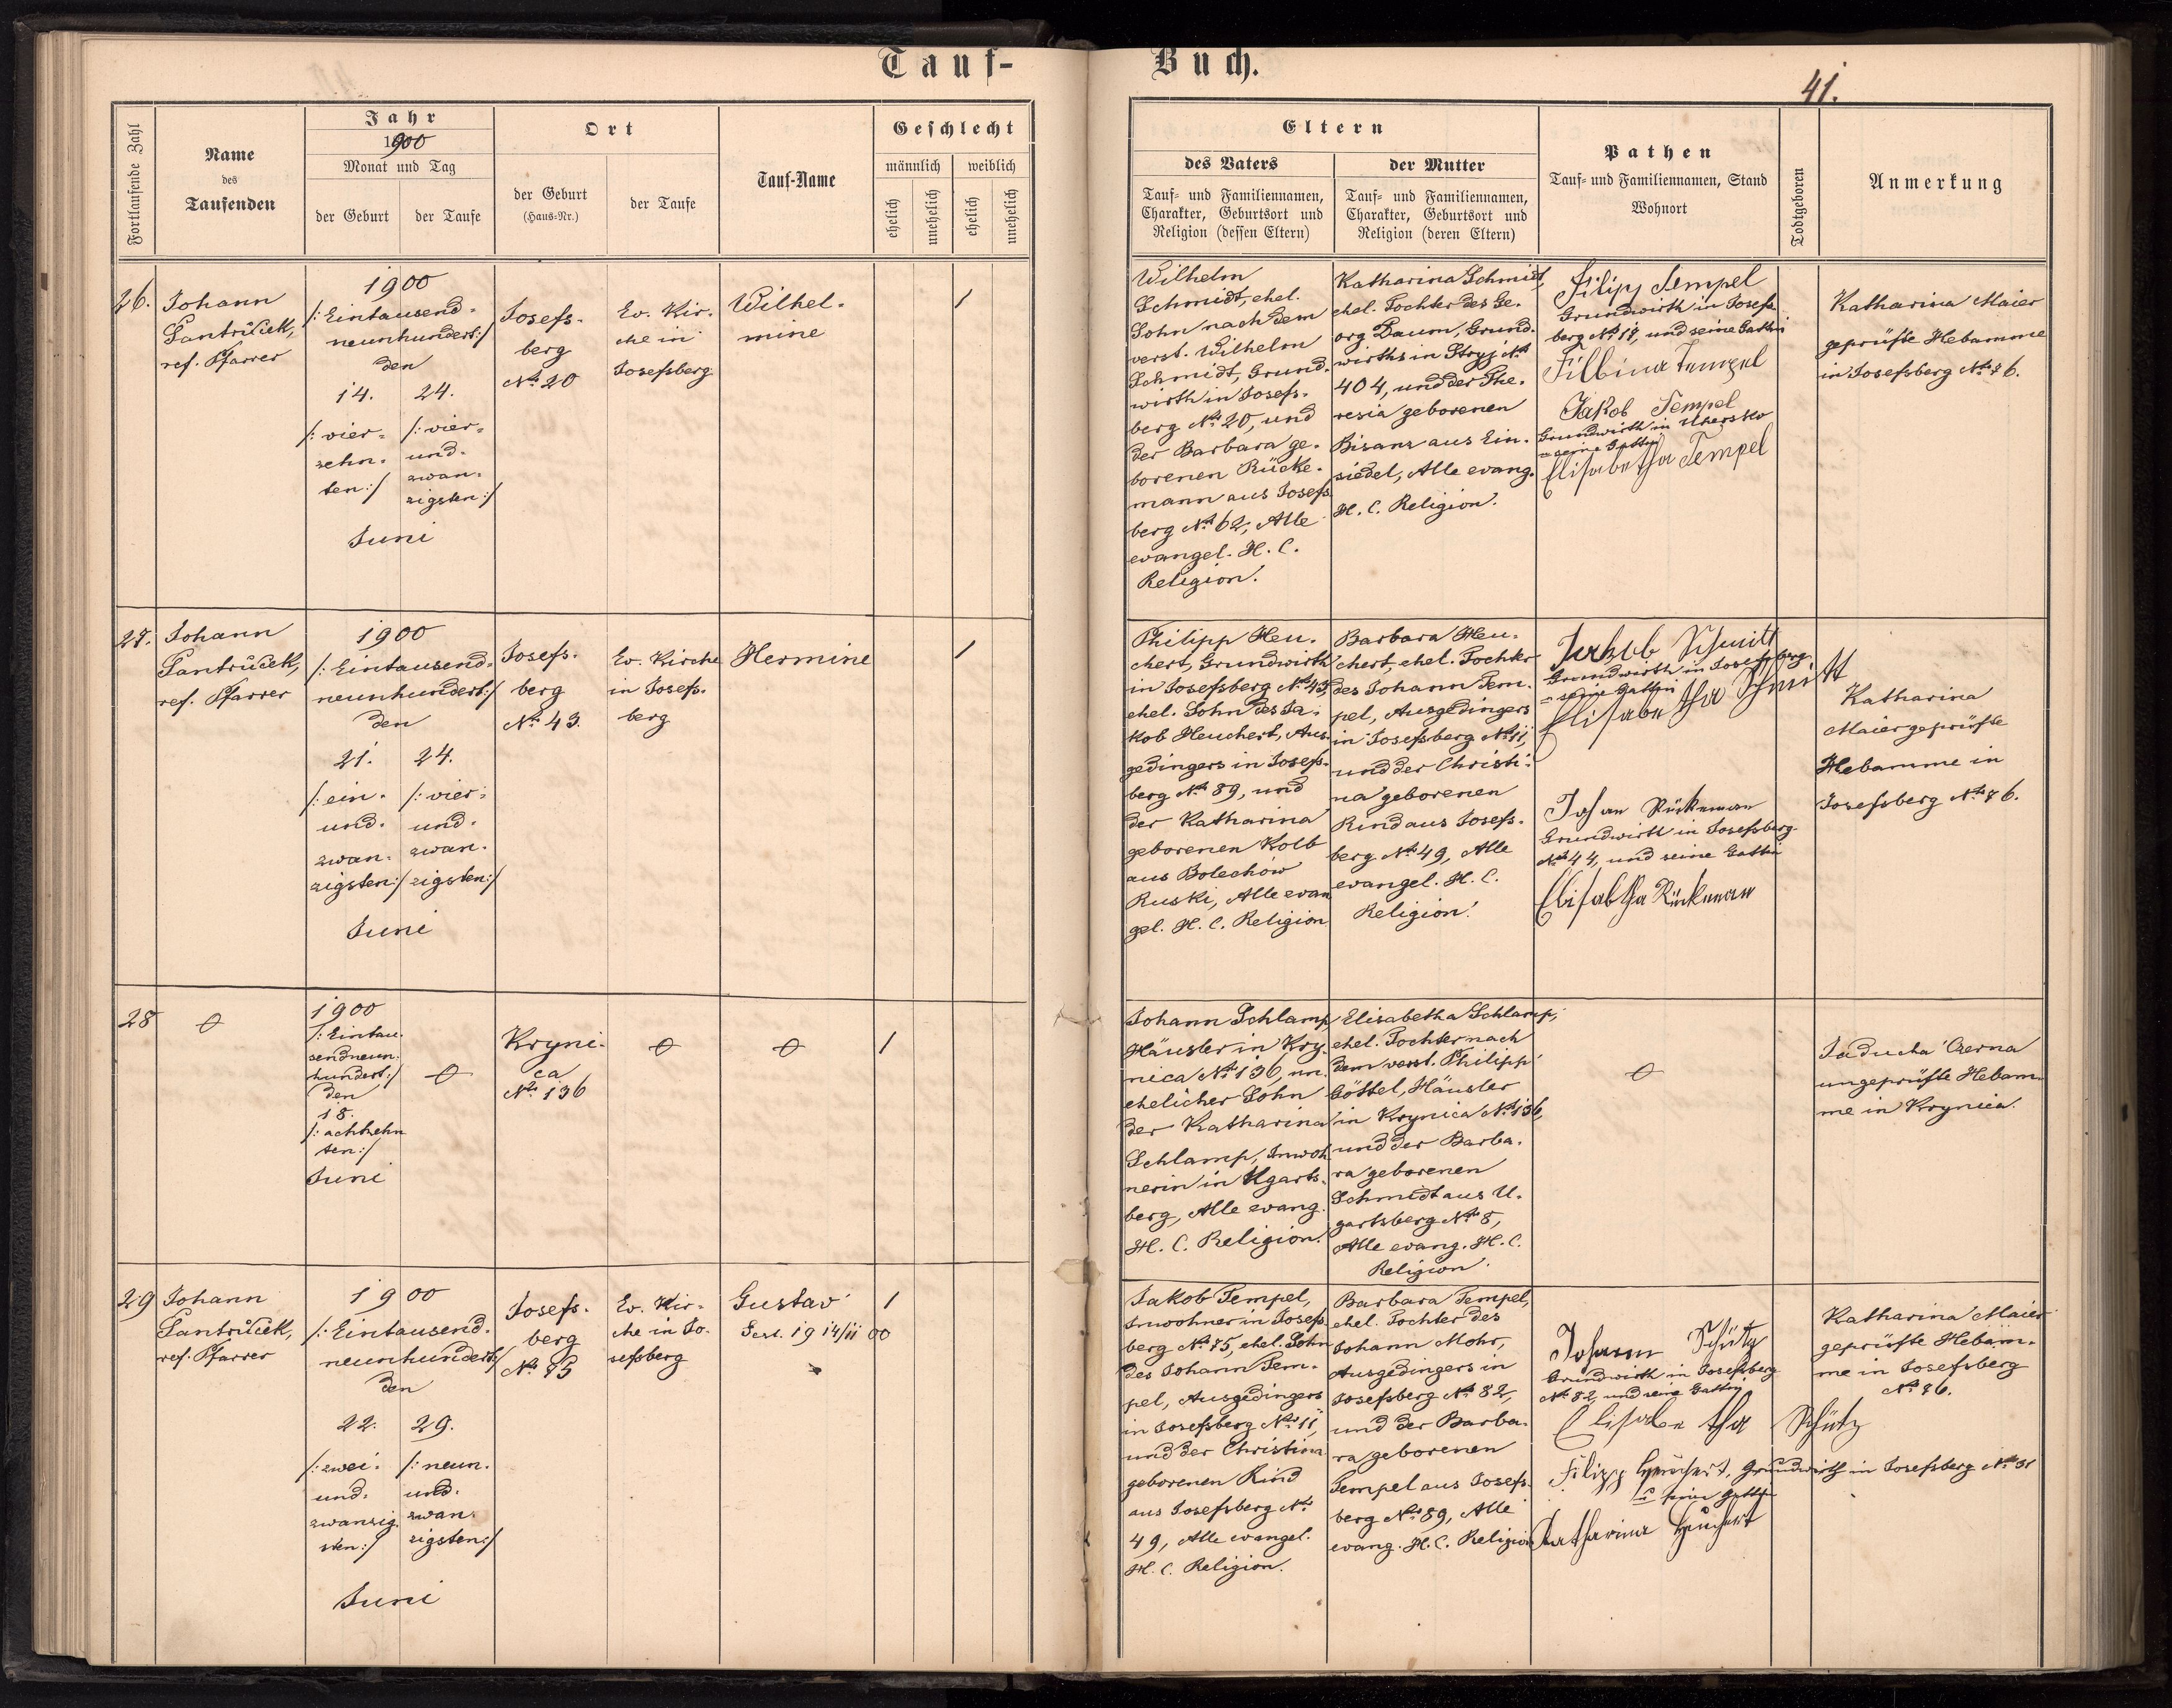 Tauf-
Buch.
41.
Fortlaufende Zahl
Name
des
Taufenden
Jahr
1900
Monat und Tag
der Geburt
der Taufe
Ort
der Geburt
(Haus-Nr.)
der Taufe
Tauf-Name
Geschlecht
männlich
weiblich
ehelich
unehelich
ehelich
unehelich
Eltern
des Vaters
Tauf- und Familiennamen,
Charakter, Geburtsort und
Religion (dessen Eltern)
der Mutter
Tauf- und Familiennamen,
Charakter, Geburtsort und
Religion (deren Eltern)
Pathen
Tauf- und Familiennamen, Stand
Wohnort
Todtgeboren
Anmerkung
26.
Johann
Santrůček,
ref. Pfarrer
1900
/: Eintausend-
neunhundert:/
den
14.
/: vier-
zehn-
ten:/
24.
/: vier-
und-
zwan-
zigsten:/
Juni
Josefs-
berg
No. 20
Ev. Kir-
che in
Josefsberg
Wilhel-
mine
1
Wilhelm
Schmidt, ehel.
Sohn nach dem
verst. Wilhelm
Schmidt, Grund-
wirth in Josefs-
berg No. 20, und
der Barbara ge-
borenen Rücke-
mann aus Josefs-
berg No. 62, Alle
evangel. H. C.
Religion.
Katharina Schmidt,
ehel. Tochter des Ge-
org Daum, Grund-
wirths in Stryj No.
404, und der The-
resia geborenen
Bisanz aus Ein-
siedel, Alle evang.
H. C. Religion.
Filipp Tempel
Grundwirth in Josefs-
berg No. 11, und seine Gattin
Filbina Tempel
Jakob Tempel
Grundwirth in
u seine Gattin
Elisabetha Tempel
Katharina Maier
geprüfte Hebamme
in Josefsberg No. 76.
27.
Johann
Santrůček,
ref. Pfarrer
1900
/: Eintausend-
neunhundert:/
den
21.
/: ein-
und-
zwan-
zigsten:/
24.
/: vier-
und-
zwan-
zigsten:/
Juni
Josefs-
berg
No. 43.
Ev. Kirche
in Josefs-
berg
Hermine
1
Philipp Heu-
chert, Grundwirth
in Josefsberg No. 43,
ehel. Sohn des Ja-
kob Heuchert, Aus-
gedingers in Josefs-
berg No. 89, und
der Katharina
geborenen Kolb
aus Bolechów
Ruski, Alle evan
gel. H. C. Religion
Barbara Heu-
chert, ehel. Tochter
des Johann Tem-
pel, Ausgedingers
in Josefsberg No. 11,
und der Christi-
na geborenen
Rind aus Josefs-
berg No. 49, Alle
evangel. H. C.
Religion.
Jakob Schmitt
Grundwirth in Josefsberg
u seine Gattin
Elisabetha Schmitt
Johan Rückeman
Grundwirth in Josefsberg
No. 44, und seine Gattin
Elisabetha Rückeman
Katharina
Maier geprüfte
Hebamme in
Josefsberg No. 76.
28
1900
/: Eintau-
sendneun-
hundert:/
den
18.
/: achtzehn
ten:/
Juni
Kryni-
ca
No. 136
1
Johann Schlamp,
Häusler in Kry-
nica No. 136, un-
ehelicher Sohn
der Katharina
Schlamp, Inwoh-
nerin in Ugarts-
berg, Alle evang.
H. C. Religion.
Elisabetha Schlamp,
ehel. Tochter nach
dem verst. Philipp
Göttel, Häusler
in Krynica No. 136,
und der Barba-
ra geborenen
Schmidt aus U-
gartsberg No. 8,
Alle evang. H. C.
Religion.
Czerna
ungeprüfte Hebam-
me in Krynica.
29
Johann
Santrůček,
ref. Pfarrer
1900
/: Eintausend-
neunhundert:/
den
22.
/: zwei-
und-
zwanzig-
sten:/
29.
/: neun-
und-
zwan-
zigsten:/
Juni
Josefs-
berg
No. 75
Ev. Kir-
che in Jo-
sefsberg
Gustav
Gest. 19 14/11 00
1
Jakob Tempel,
Inwohner in Josefs-
berg No. 75, ehel. Sohn
des Johann Tem-
pel, Ausgedingers
in Josefsberg No. 11,
und der Christina
geborenen Rind
aus Josefsberg No.
49, Alle evangel.
H. C. Religion.
Barbara Tempel,
ehel. Tochter des
Johann Mohr,
Ausgedingers in
Josefsberg No. 82,
und der Barba-
ra geborenen
Tempel aus Josefs-
berg No. 89, Alle
evang. H. C. Religion
Johann Schütz
Grundwirth in Josefsberg
No. 82, und seine Gattin
Elisabetha Schütz
Filipp Heuchert, Grundwirth in Josefsberg No. 31
u seine Gattin
Katharina Heuchert
Katharina Maier
geprüfte Hebam-
me in Josefsberg
No. 76.